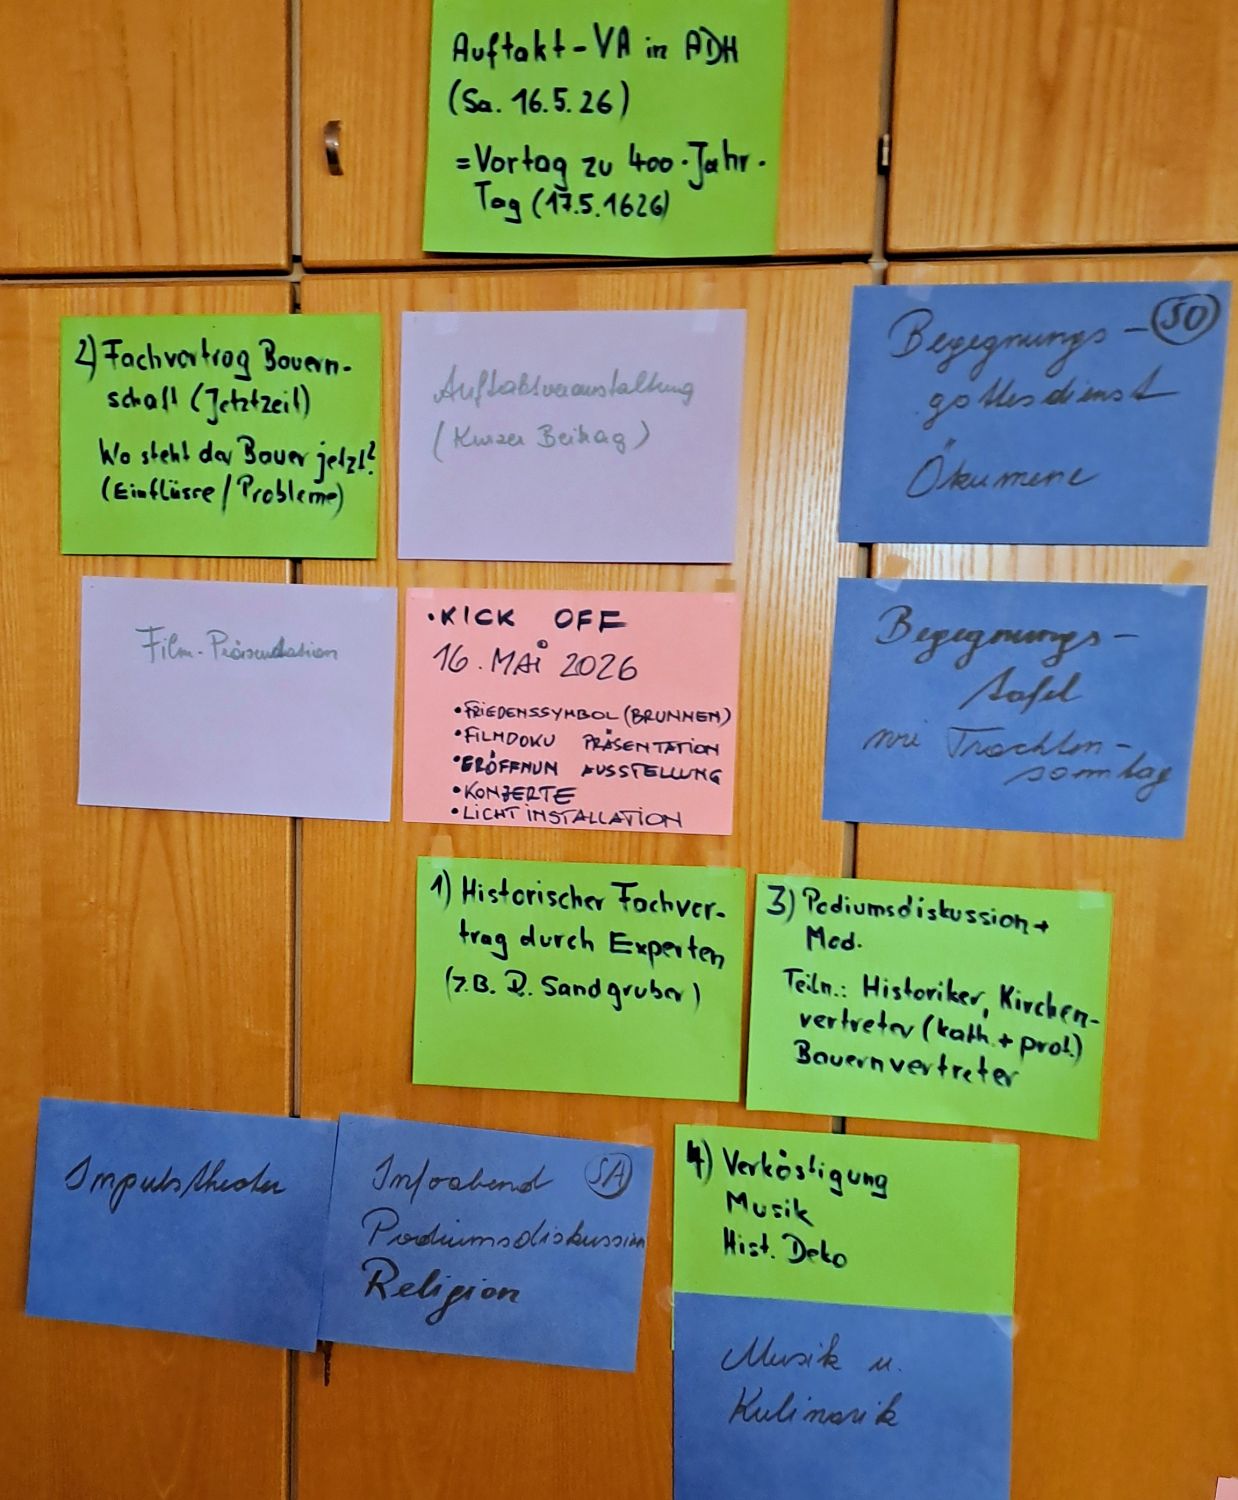 Auftakt-VA in ADH
(Sa. 16.5.26)
= Vortag zu 400-Jahr-
Tag (17.5.1626)
2) Fachvortrag Bauern-
schaft (Jetztzeit)
Wo steht der Bauer jetzt?
(Einflüsse/Probleme)
Auftaktveranstaltung
(Kurzer Beitrag)
Begegnungs-
SO
gottesdienst
Ökumene
Film-Präsentation
•KICK OFF
16. MAi 2026
•FRiEDENSSYMBOL (BRUNNEN)
•FiLMDOKU PRÄSENTATiON
•ERÖFFNUN AUSSTELLUNG
•KONZERTE
•LiCHTiNSTALLATiON
Begegnungs-
tafel
wie Trachten-
sonntag
1) Historischer Fachver-
trag durch Experten
(z.B. R. Sandgruber)
3) Podiumsdiskussion +
Mod.
Teiln.: Historiker, Kirchen-
vertreter (kath. + prot.)
Bauernvertreter
Impulstheater
Infoabend
SA
Podiumsdiskussion
Religion
4) Verköstigung
Musik
Hist. Deko
Musik u.
Kulinarik